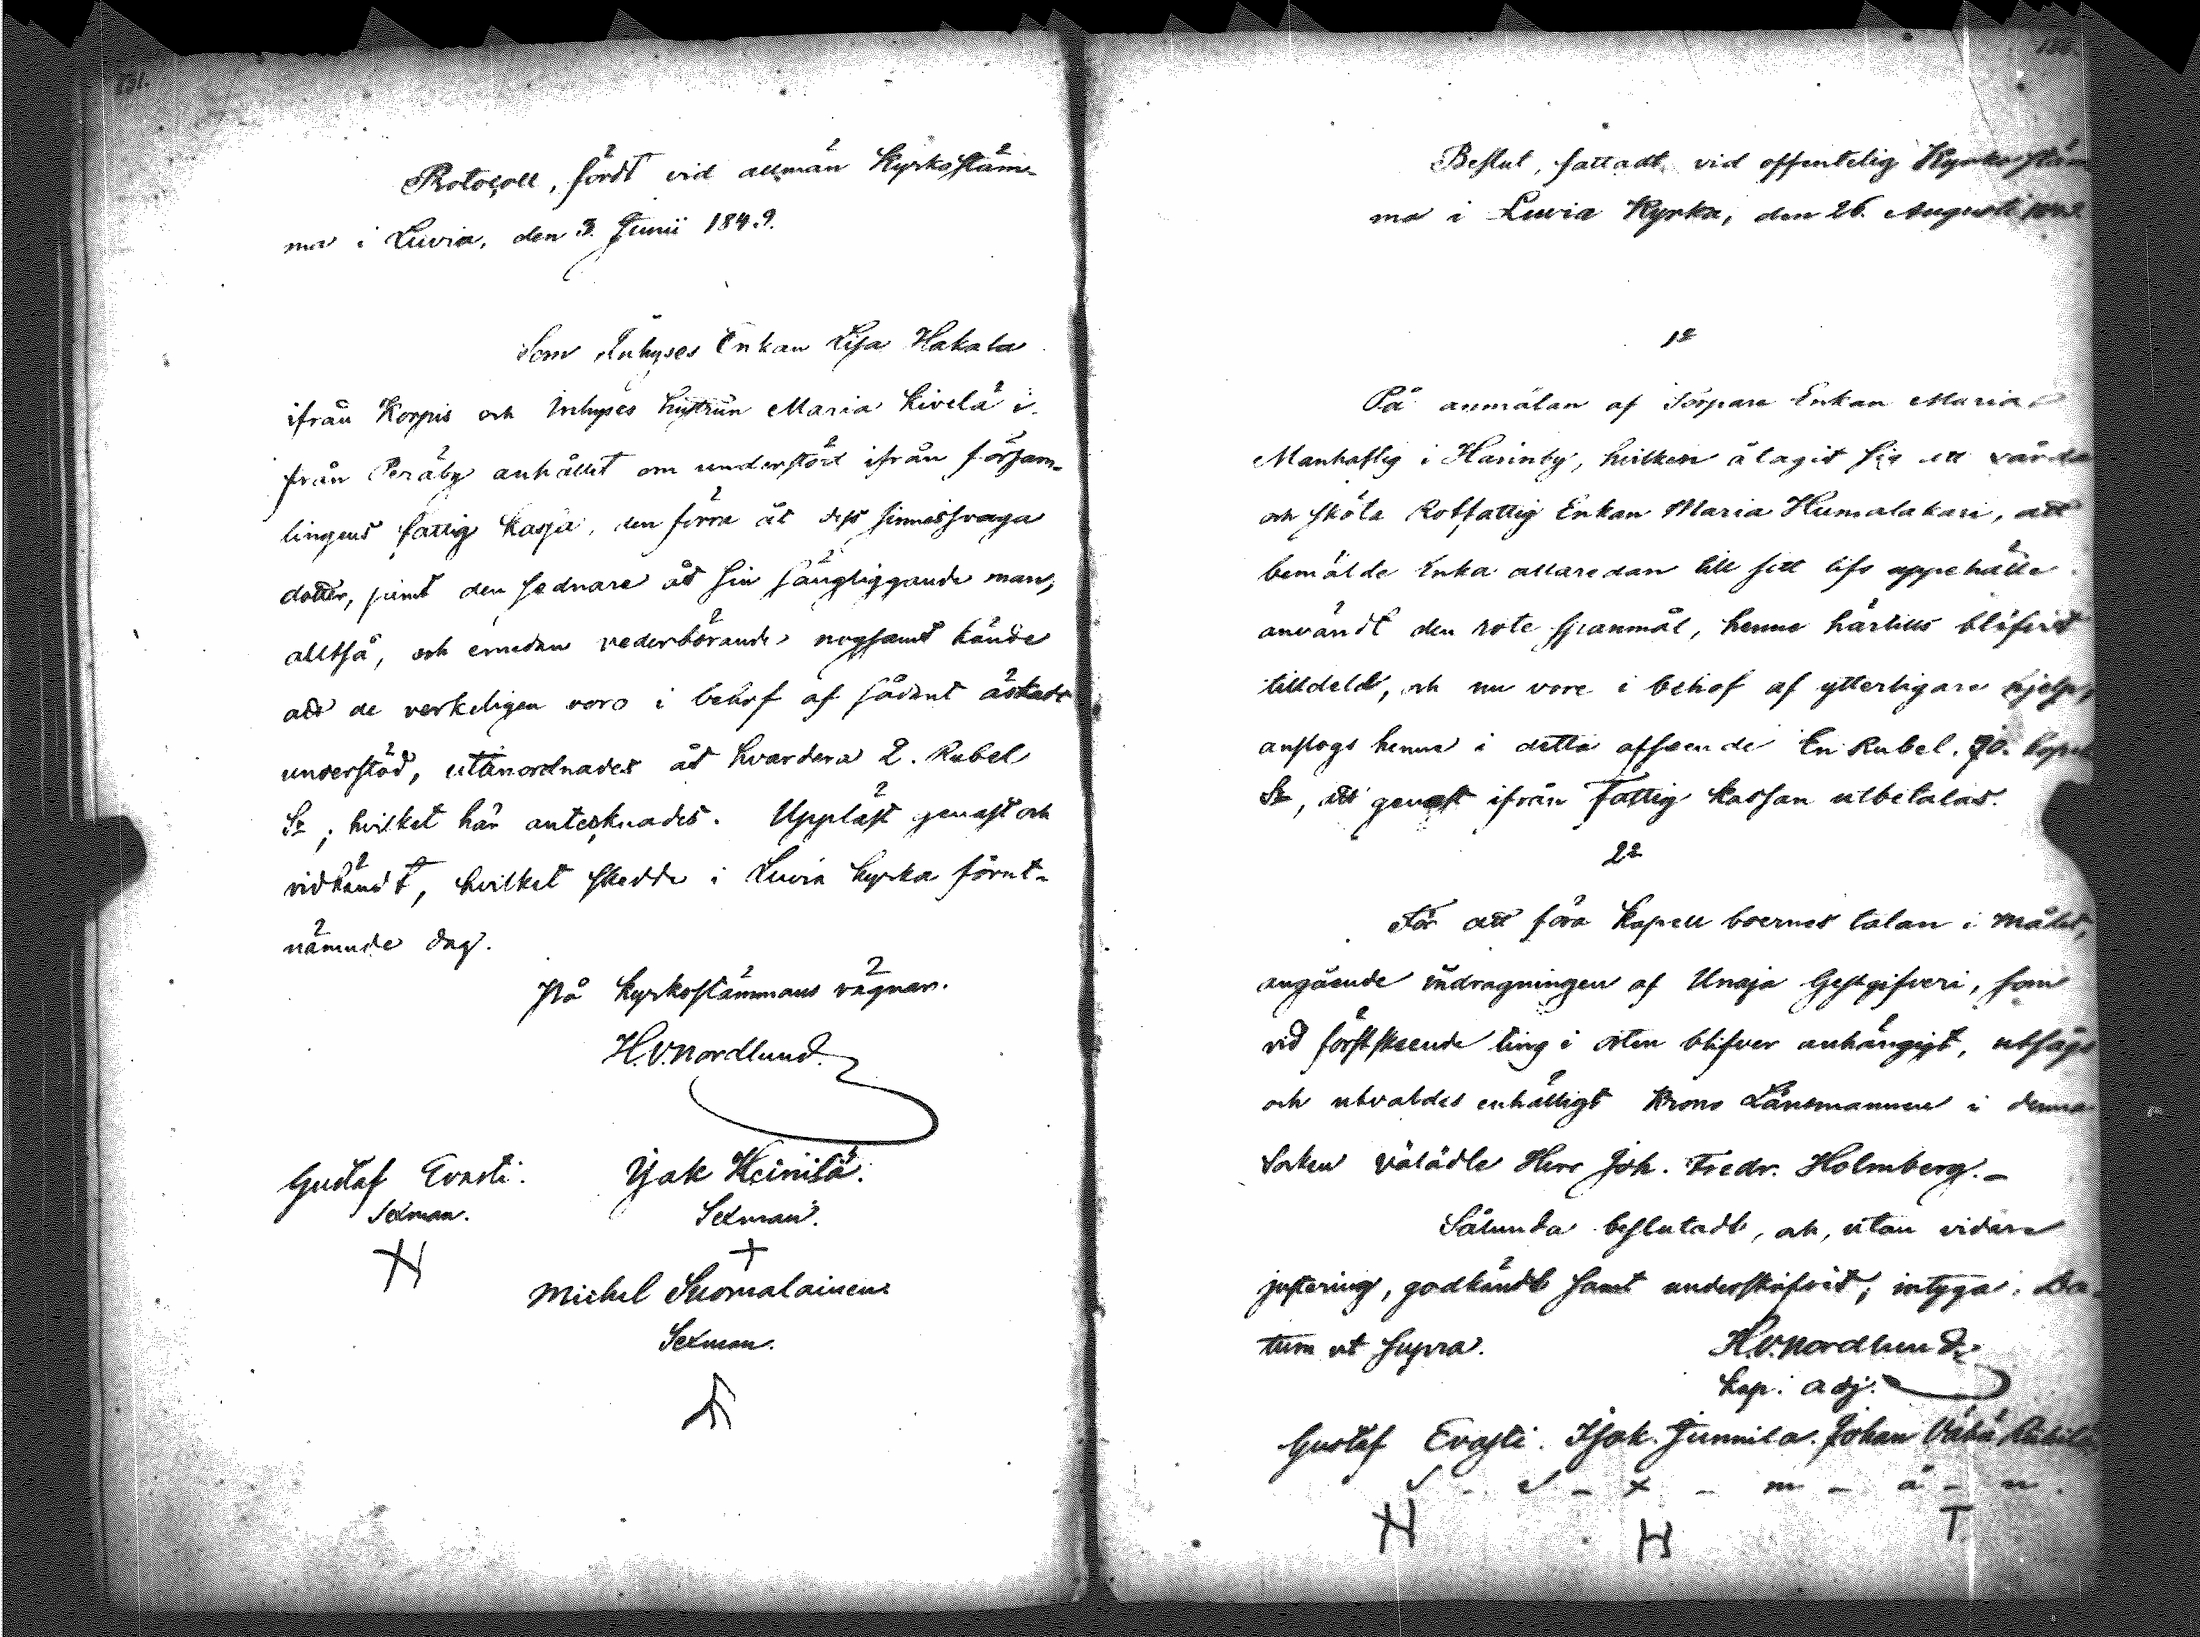 131.
Protocoll, fördt vid allmän Kyrkostäm-
ma i Luvia, den 3. Junii 1849.
Som Inhyses Enkan Lisa Hakala
ifrån Korpis och Inhyses hustrun Maria Kivelä i-
från Peräby anhållit om understöd ifrån försam-
lingens fattig kassa, den förra åt dess sinnessvaga
dotter, samt den sednare åt sin sängliggande man,
alltså, och emedan vederbörande nogsamt kände
att de verkeligen voro i behof af sådant äskadt
understöd, utanordnades åt hvardera 2. Rubel
Sr, hvilket här antecknades. Uppläst genast och
vidkändt, hvilket skedde i Luvia kyrka förut-
nämnde dag.
På Kyrkostämmans vägnar.
H.V. Nordlund.
Gustaf Evasti. Isak Heinilä.
Sexman. Sexman.
Michel Suomalainen
Sexman.
Beslut, fattadt vid offentelig Kyrkostäm
ma i Luvia Kyrka, den 26. Augusti
1o
På anmälan af Torpare Enkan Maria
Manhaflig i Harinby, hvilken ålagit sig att vårda
och sköta Rotfattig Enkan Maria Humalakari, att
bemälde Enka allaredan till sitt lifs uppehälle
användt den rote spanmål, henne härtills blifvit
tilldeld, och nu vore i behof af ytterligare hjelp,
anslogs henne i detta afseende En Rubel. 70. kopek
Sr, att genast ifrån Fattig kassan utbetalas.
2o
För att föra Kapell boernes talan i målet,
angående indragningen af Unaja Gestgifveri, som
vid förstskeende ting i orten blifver anhängigt, utsågs
och utvaldes enhälligt Krono Länsmannen i denna
Socken välädle Herr Joh. Fredr. Holmberg.-
Sålunda beslutadt, och, utan vidare
justering, godkändt samt underskrifvit, intyga. Da-
tum ut supra. H.V. Nordlund
Kap: adj.
Gustaf Evasti. Isak. Junnila. Johan Vähä
S - e - x - m - ä - n.